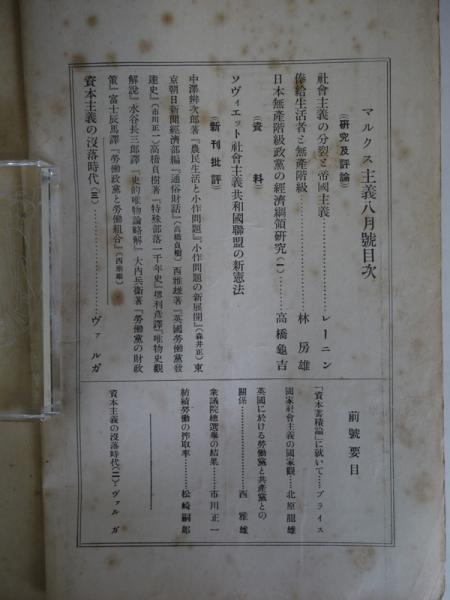 マルクス主義八月號目次
(硏究及評論)
社會主義の分裂と帝國主義……………レーニン
俸給生活者と無產階級……………林房雄
日本無產階級政黨の經濟綱領硏究(一)……高橋龜吉
(資料)
ソヴィエット社會主義共和國聯盟の新憲法
(新刊批評)
中澤辨次郎著『農民生活と小作問題』『小作問題の新展開』(森井正)東
京朝日新聞經濟部編『通俗財話』(高橋貞樹)西雅雄著『英國勞働黨發
達史』(市川正一)高橋貞樹著『特殊部落一千年史』堺利彥譯『唯物史觀
解說』水谷長三郞譯『史的唯物論略解』大內兵衞著『勞働黨の財政
策』富士辰馬譯『勞働政黨と勞働組合』(西雅雄)
資本主義の沒落時代(三)……………ヴァルガ
前號要目
「資本蓄積論」に就いて……プライス
國家社會主義の國家觀……北原龍雄
英國に於ける勞働黨と共產黨との
關係……………西雅雄
衆議院總選擧の結果……市川正一
紡績勞働の搾取率……松崎嗣郞
資本主義の沒落時代(二)…ヴァルガ